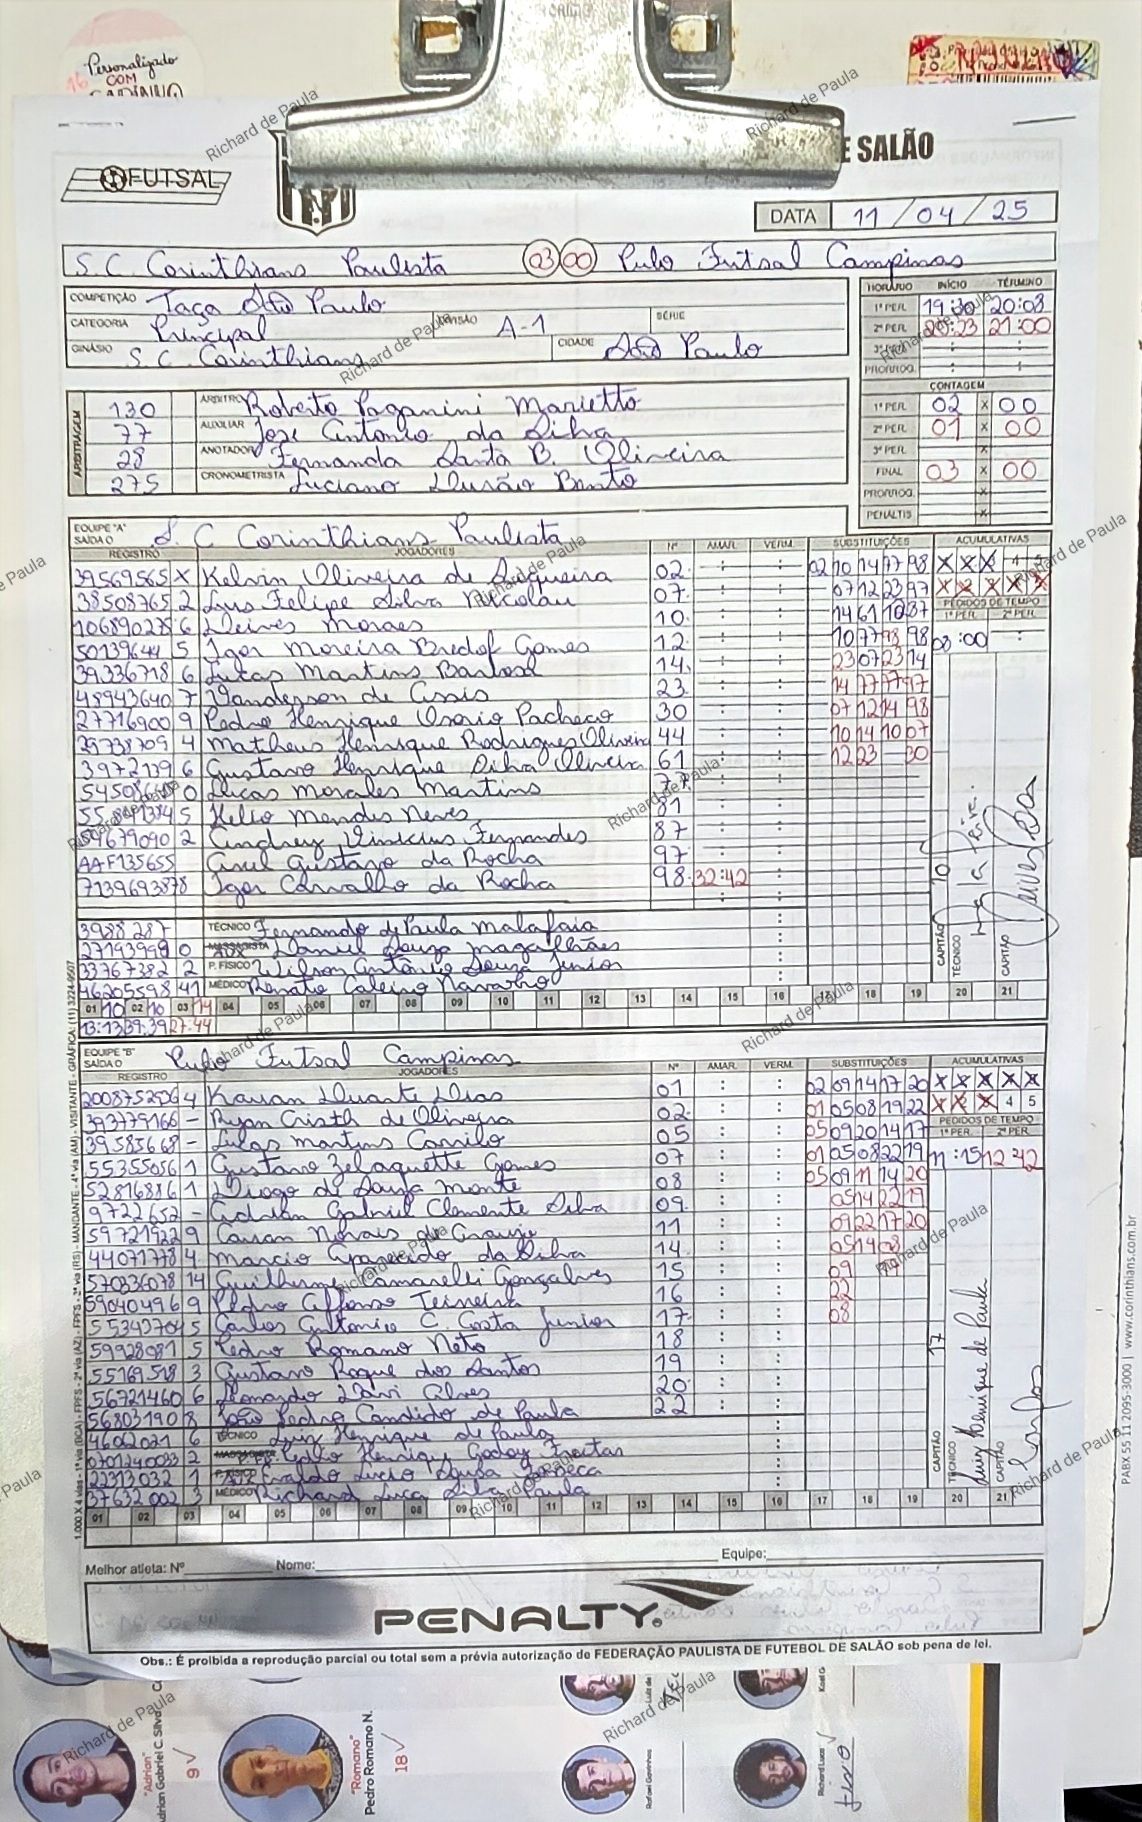 Personalizado
COM
E SALÃO
FUTSAL
DATA 11 / 04 / 25
S.C. Corinthians Paulista 03 00 Pulo Futsal Campinas
COMPETIÇÃO Taça São Paulo
CATEGORIA Principal DIVISÃO A-1 SÉRIE
GINÁSIO S.C. Corinthians CIDADE São Paulo
HORÁRIO INÍCIO TÉRMINO
1º PER. 19:30 20:08
2º PER. 20:23 21:00
3º PER. : :
PRORROG. : :
CONTAGEM
1º PER. 02 x 00
2º PER. 01 x 00
3º PER. x
FINAL 03 x 00
PRORROG. x
PENALTIS x
ARBITRAGEM
130 ARBITRO Roberto Paganini Marietto
77 AUXILIAR José Antonio da Silva
28 ANOTADOR Fernanda Santa B. Oliveira
275 CRONOMETRISTA Luciano Durão Bento
EQUIPE "A" S. C Corinthians Paulista
SAÍDA O
REGISTRO JOGADORES Nº AMAR. VERM. SUBSTITUIÇÕES ACUMULATIVAS
39569565 X Kelvin Oliveira de Siqueira 02 02 10 14 77 98 X X X 4 5
38508765 2 Luis Felipe Silva Nicolau 07 07 12 23 97 X X X X X
106890275 6 Deives Moraes 10 14 61 10 87 PEDIDOS DE TEMPO
1º PER. 2º PER.
50139644 5 Igor Moreira Bredof Gomes 12 10 77 98 98 03:00 :
39336718 6 Lucas Martins Barbosa 14 23 07 23 14
48943640 7 Wanderson de Assis 23 14 77 77 97
27716900 9 Pedro Henrique Osorio Pacheco 30 07 12 14 98
39738709 4 Matheus Henrique Rodrigues Oliveira 44 10 14 10 07
3972139 6 Gustavo Henrique Silva Oliveira 61 12 23 — 30
0 Lucas Morales Martins 77
5 Helio Mendes Neves 81
59679090 2 Andrey Vinicius Fernandes 87
AAF135655 Ariel Gustavo da Rocha 97
7139693878 Igor Carvalho da Rocha 98 32:42
CAPITÃO 10
TÉCNICO
CAPITÃO
3988 287 TÉCNICO Fernando de Paula Malafaia
27193999 0 MASSAGISTA Daniel Souza Magalhães
33767382 2 P. FÍSICO Wilson Antônio Souza Junior
46205598 41 MÉDICO Renato Caleiro Navarro
01 10 02 10 03 14 04 05 06 07 08 09 10 11 12 13 14 15 16 17 18 19 20 21
13:13 39:39 27:44
EQUIPE "B" Pulo Futsal Campinas
SAÍDA O
REGISTRO JOGADORES Nº AMAR. VERM. SUBSTITUIÇÕES ACUMULATIVAS
200875250 4 Kauan Duarte Dias 01 02 09 14 17 20 X X X X X
393779166 - Ryan Cristh de Oliveira 02 01 05 08 19 22 X X X 4 5
39585668 - Lucas Martins Carrilo 05 05 09 20 14 17 PEDIDOS DE TEMPO
1º PER. 2º PER.
55355056 1 Gustavo Zelaquette Gomes 07 01 05 08 22 19 11:15 12:42
52816886 1 Diogo de Souza Monte 08 05 09 11 14 20
9722652 - Adrian Gabriel Clemente Silva 09 05 14 22 19
59721922 9 Cauan Novais de Araujo 11 09 22 17 20
44071778 4 Marcio Aparecido da Silva 14 05 14 08
570336078 14 Guilherme Camarelli Gonçalves 15 09
59040496 9 Pedro Affonso Teixeira 16 22
55343704 5 Carlos Antonio C. Costa Junior 17 08
59928081 5 Pedro Romano Neto 18
55169518 3 Gustavo Roque dos Santos 19
56721460 6 Leonardo Davi Alves 20
56803190 8 João Pedro Candido de Paula 22
CAPITÃO 17
TÉCNICO Luiz Henrique de Paula
CAPITÃO
46002021 6 TÉCNICO Luiz Henrique de Paula
0701240033 2 MASSAGISTA Pedro Henrique Godoy Freitas
22313032 1 Evaldo Lucio Sousa Fonseca
37632002 3 MÉDICO Richard Luca Silva Paula
01 02 03 04 05 06 07 08 09 10 11 12 13 14 15 16 17 18 19 20 21
Melhor atleta: Nº Nome: Equipe:
PENALTY
Obs.: É proibida a reprodução parcial ou total sem a prévia autorização de FEDERAÇÃO PAULISTA DE FUTEBOL DE SALÃO sob pena de lei.
PABX 55 11 2095-3000 | www.corinthians.com.br
"Adrian"
Adrian Gabriel C. Silva
9
"Romano"
Pedro Romano N.
18
Richard Luca
Richard de Paula